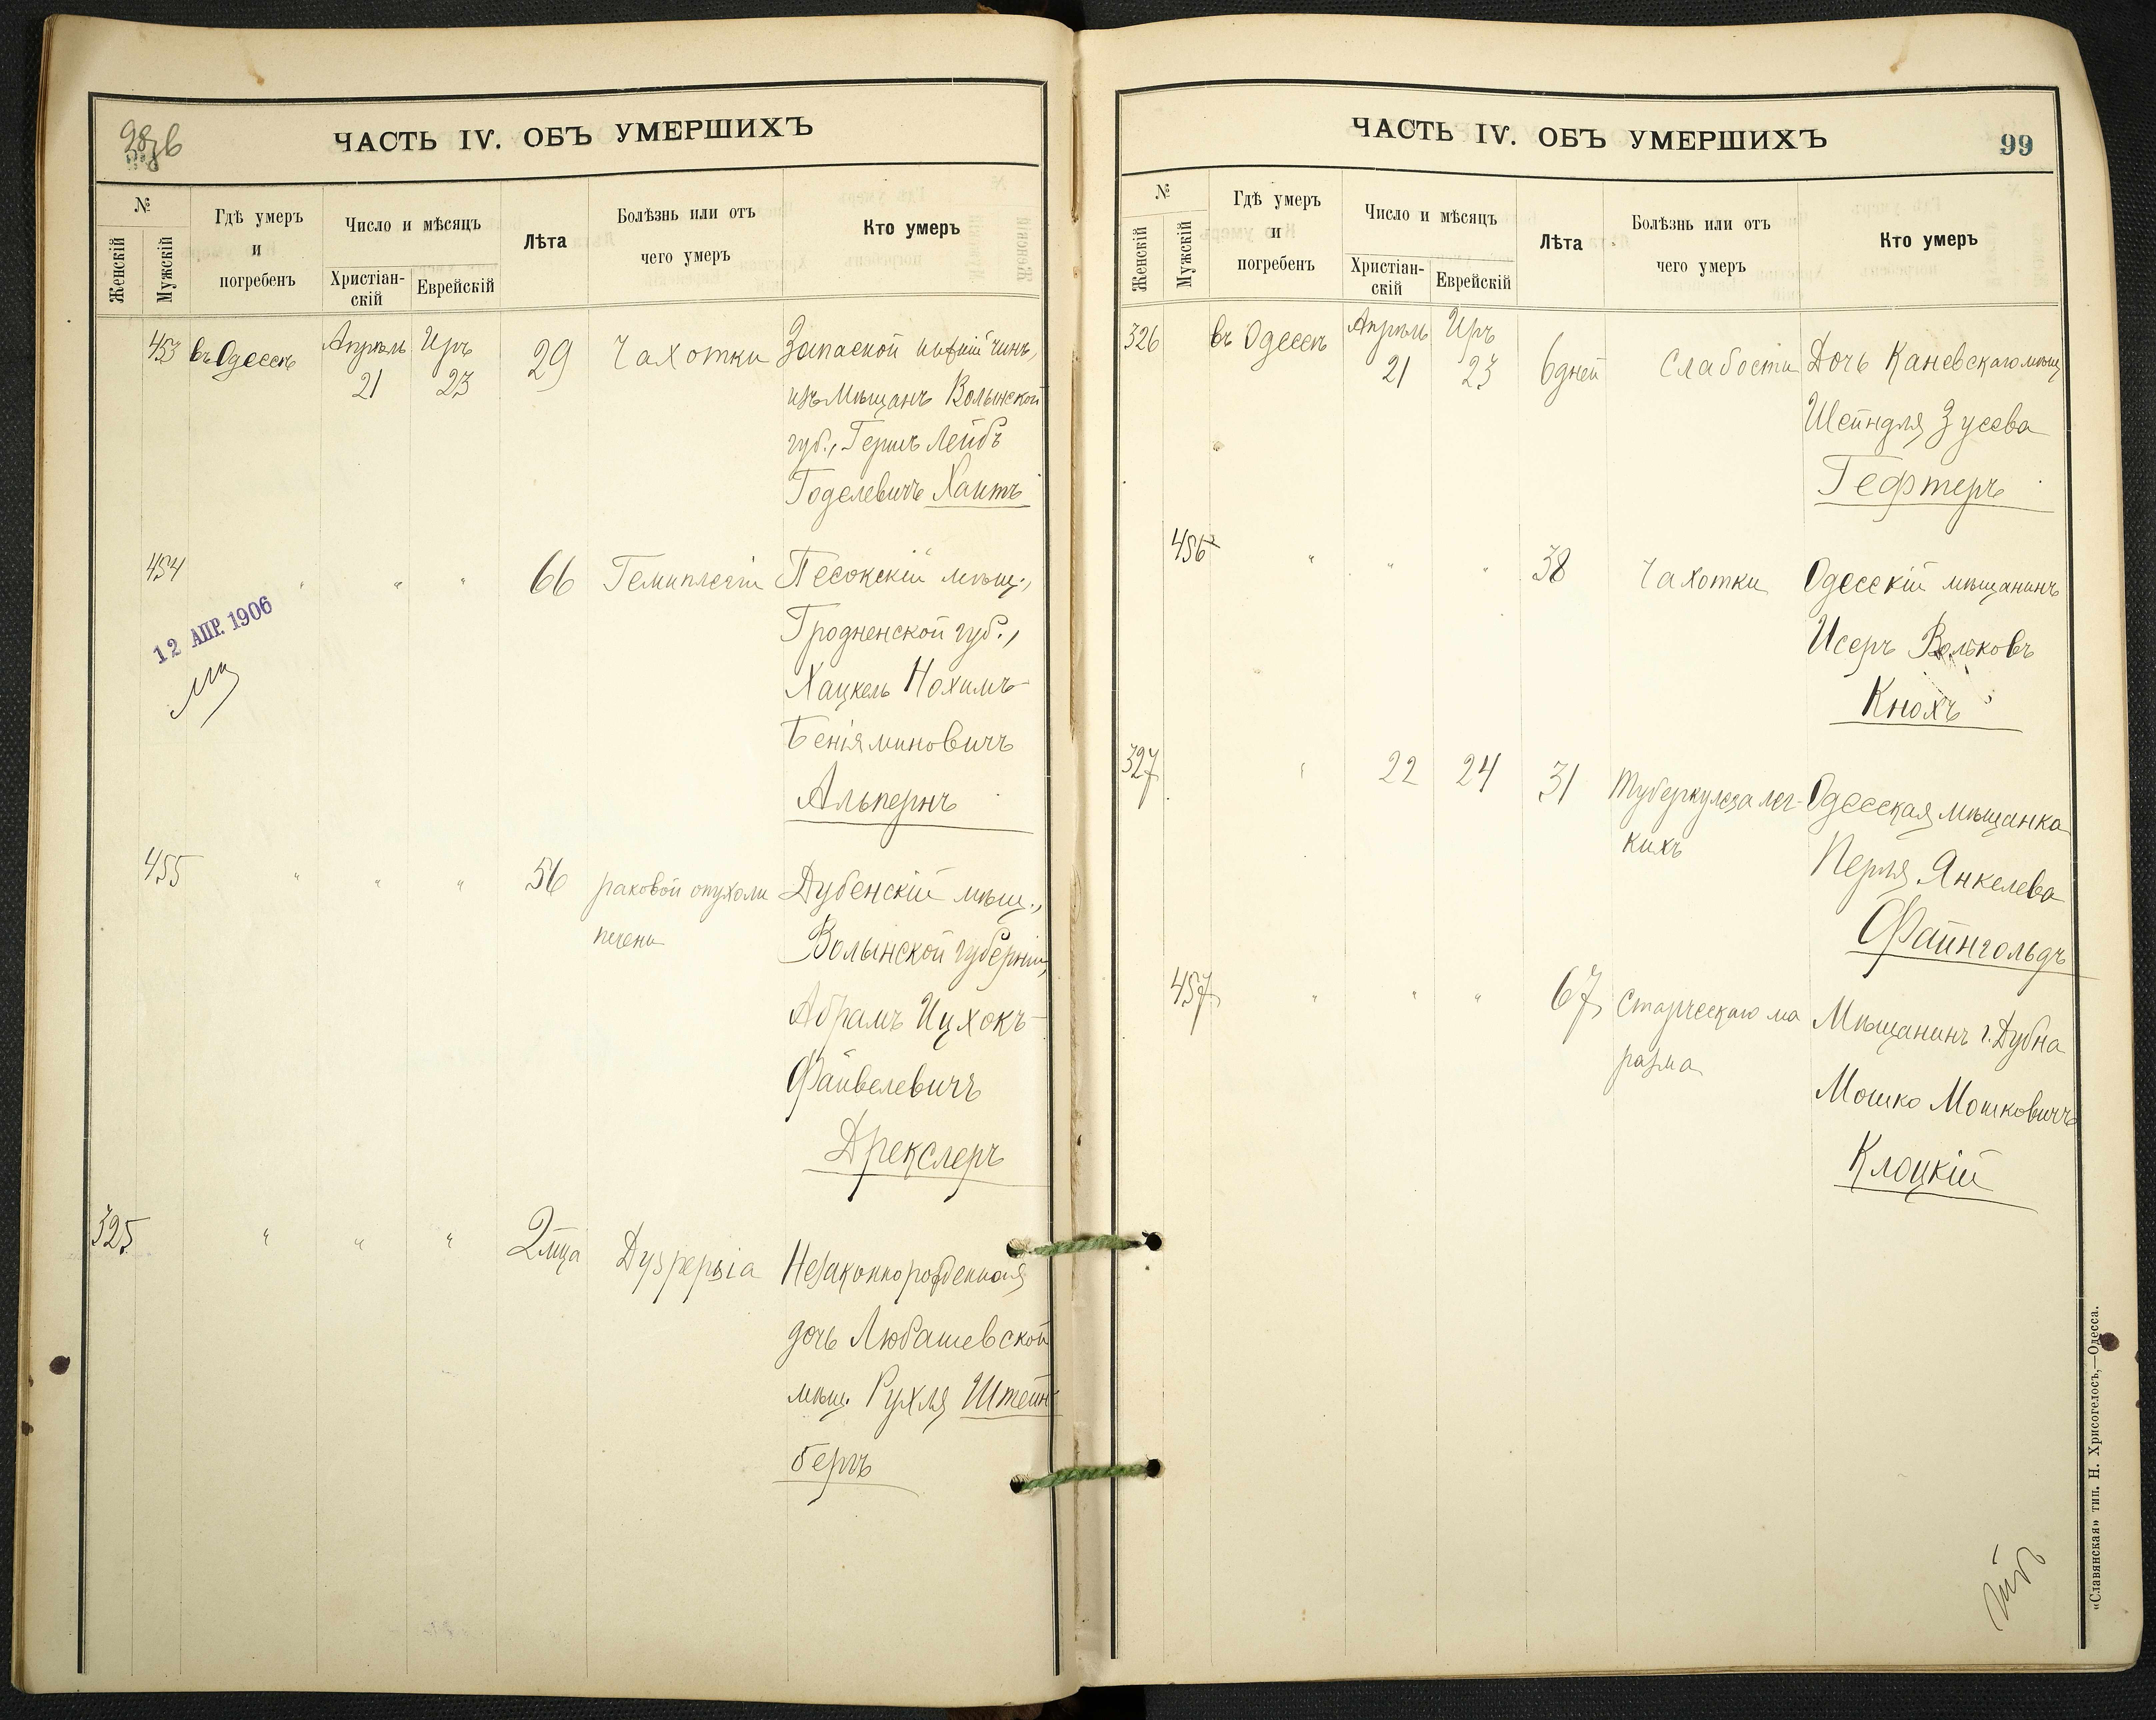 98 об
ЧАСТЬ IV. ОБЪ УМЕРШИХЪ
№
Женскій
Мужскій
Гдѣ умеръ
и
погребенъ
Число и мѣсяцъ
Христіан-
скій
Еврейскій
Лѣта
Болѣзнь или отъ
чего умеръ
Кто умеръ
453 въ Одессѣ Апрѣль Иръ 29 Чахотки Запасной нижній чинъ,
21 23 изъ мѣщанъ Волынской
губ., Гершъ Лейбъ
Годелевичъ Хаитъ
454 " " " 66 Гемиплегіи Песокскій мѣщ.,
Гродненской губ.,
Хацкель Нохимъ-
Беніяминовичъ
Альпернъ
12 АПР. 1906
455 " " " 56 раковой опухоли Дубенскій мѣщ.,
печени Волынской губерніи,
Абрамъ Ицхокъ-
Файвелевичъ
Дрекслеръ
325 " " " 2 мца Незаконнорожденная
дочь Любашевской
мѣщ. Рухля Штейн-
бергъ
ЧАСТЬ IV. ОБЪ УМЕРШИХЪ
99
№
Женскій
Мужскій
Гдѣ умеръ
и
погребенъ
Число и мѣсяцъ
Христіан-
скій
Еврейскій
Лѣта
Болѣзнь или отъ
чего умеръ
Кто умеръ
326 въ Одессѣ Апрѣль Иръ 6 дней Слабости Дочь Каневскаго мѣщ
21 23 Шейндля Зусева
Гефтеръ
456 " " " 38 Чахотки Одесскій мѣщанинъ
Исеръ Вольковъ
Кнохъ
327 " 22 24 31 Туберкулеза лег- Одесская мѣщанка
кихъ Перля Янкелева
Файнгольдъ
457 " " " 67 Старческаго ма Мѣщанинъ г. Дубна
разма Мошко Мошковичъ
Клоцкій
«Славянская» тип. Н. Хрисогелосъ,—Одесса.